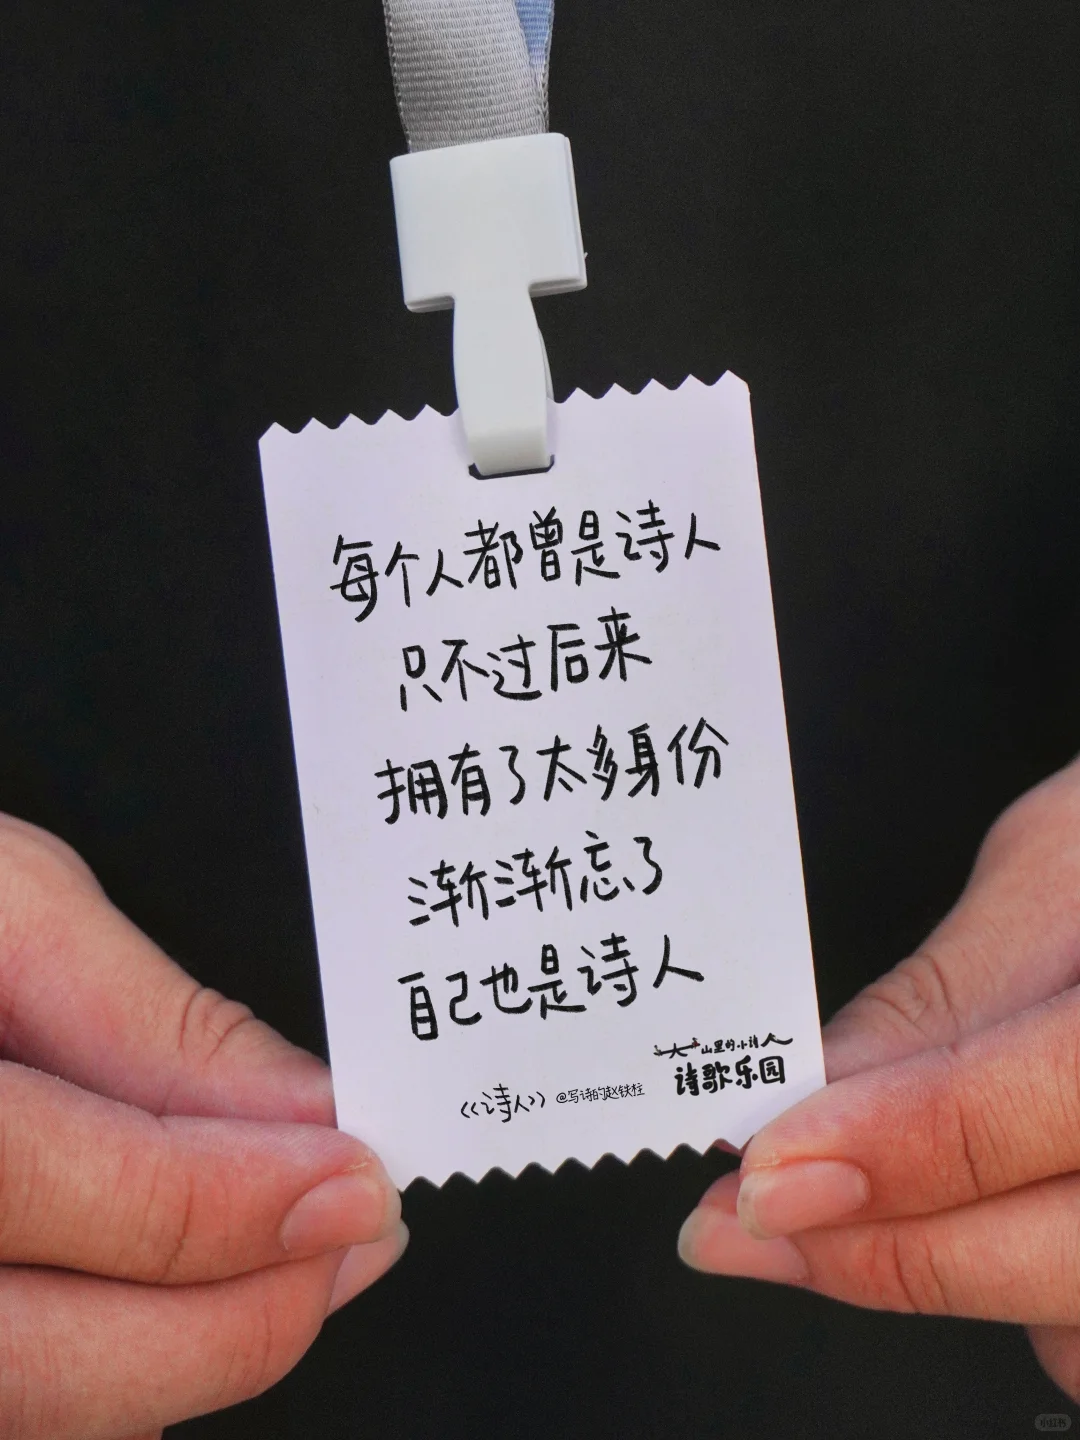 每个人都曾是诗人
只不过后来
拥有了太多身份
渐渐忘了
自己也是诗人
大山里的小诗人
诗歌乐园
《诗人》 @写诗的赵铁柱
小红书